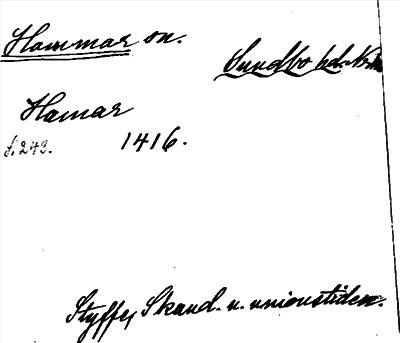 Hammar sn.
Sundbo hd. Nke
Hamar
s. 243. 1416.
Styffe, Skand. u. unionstiden.